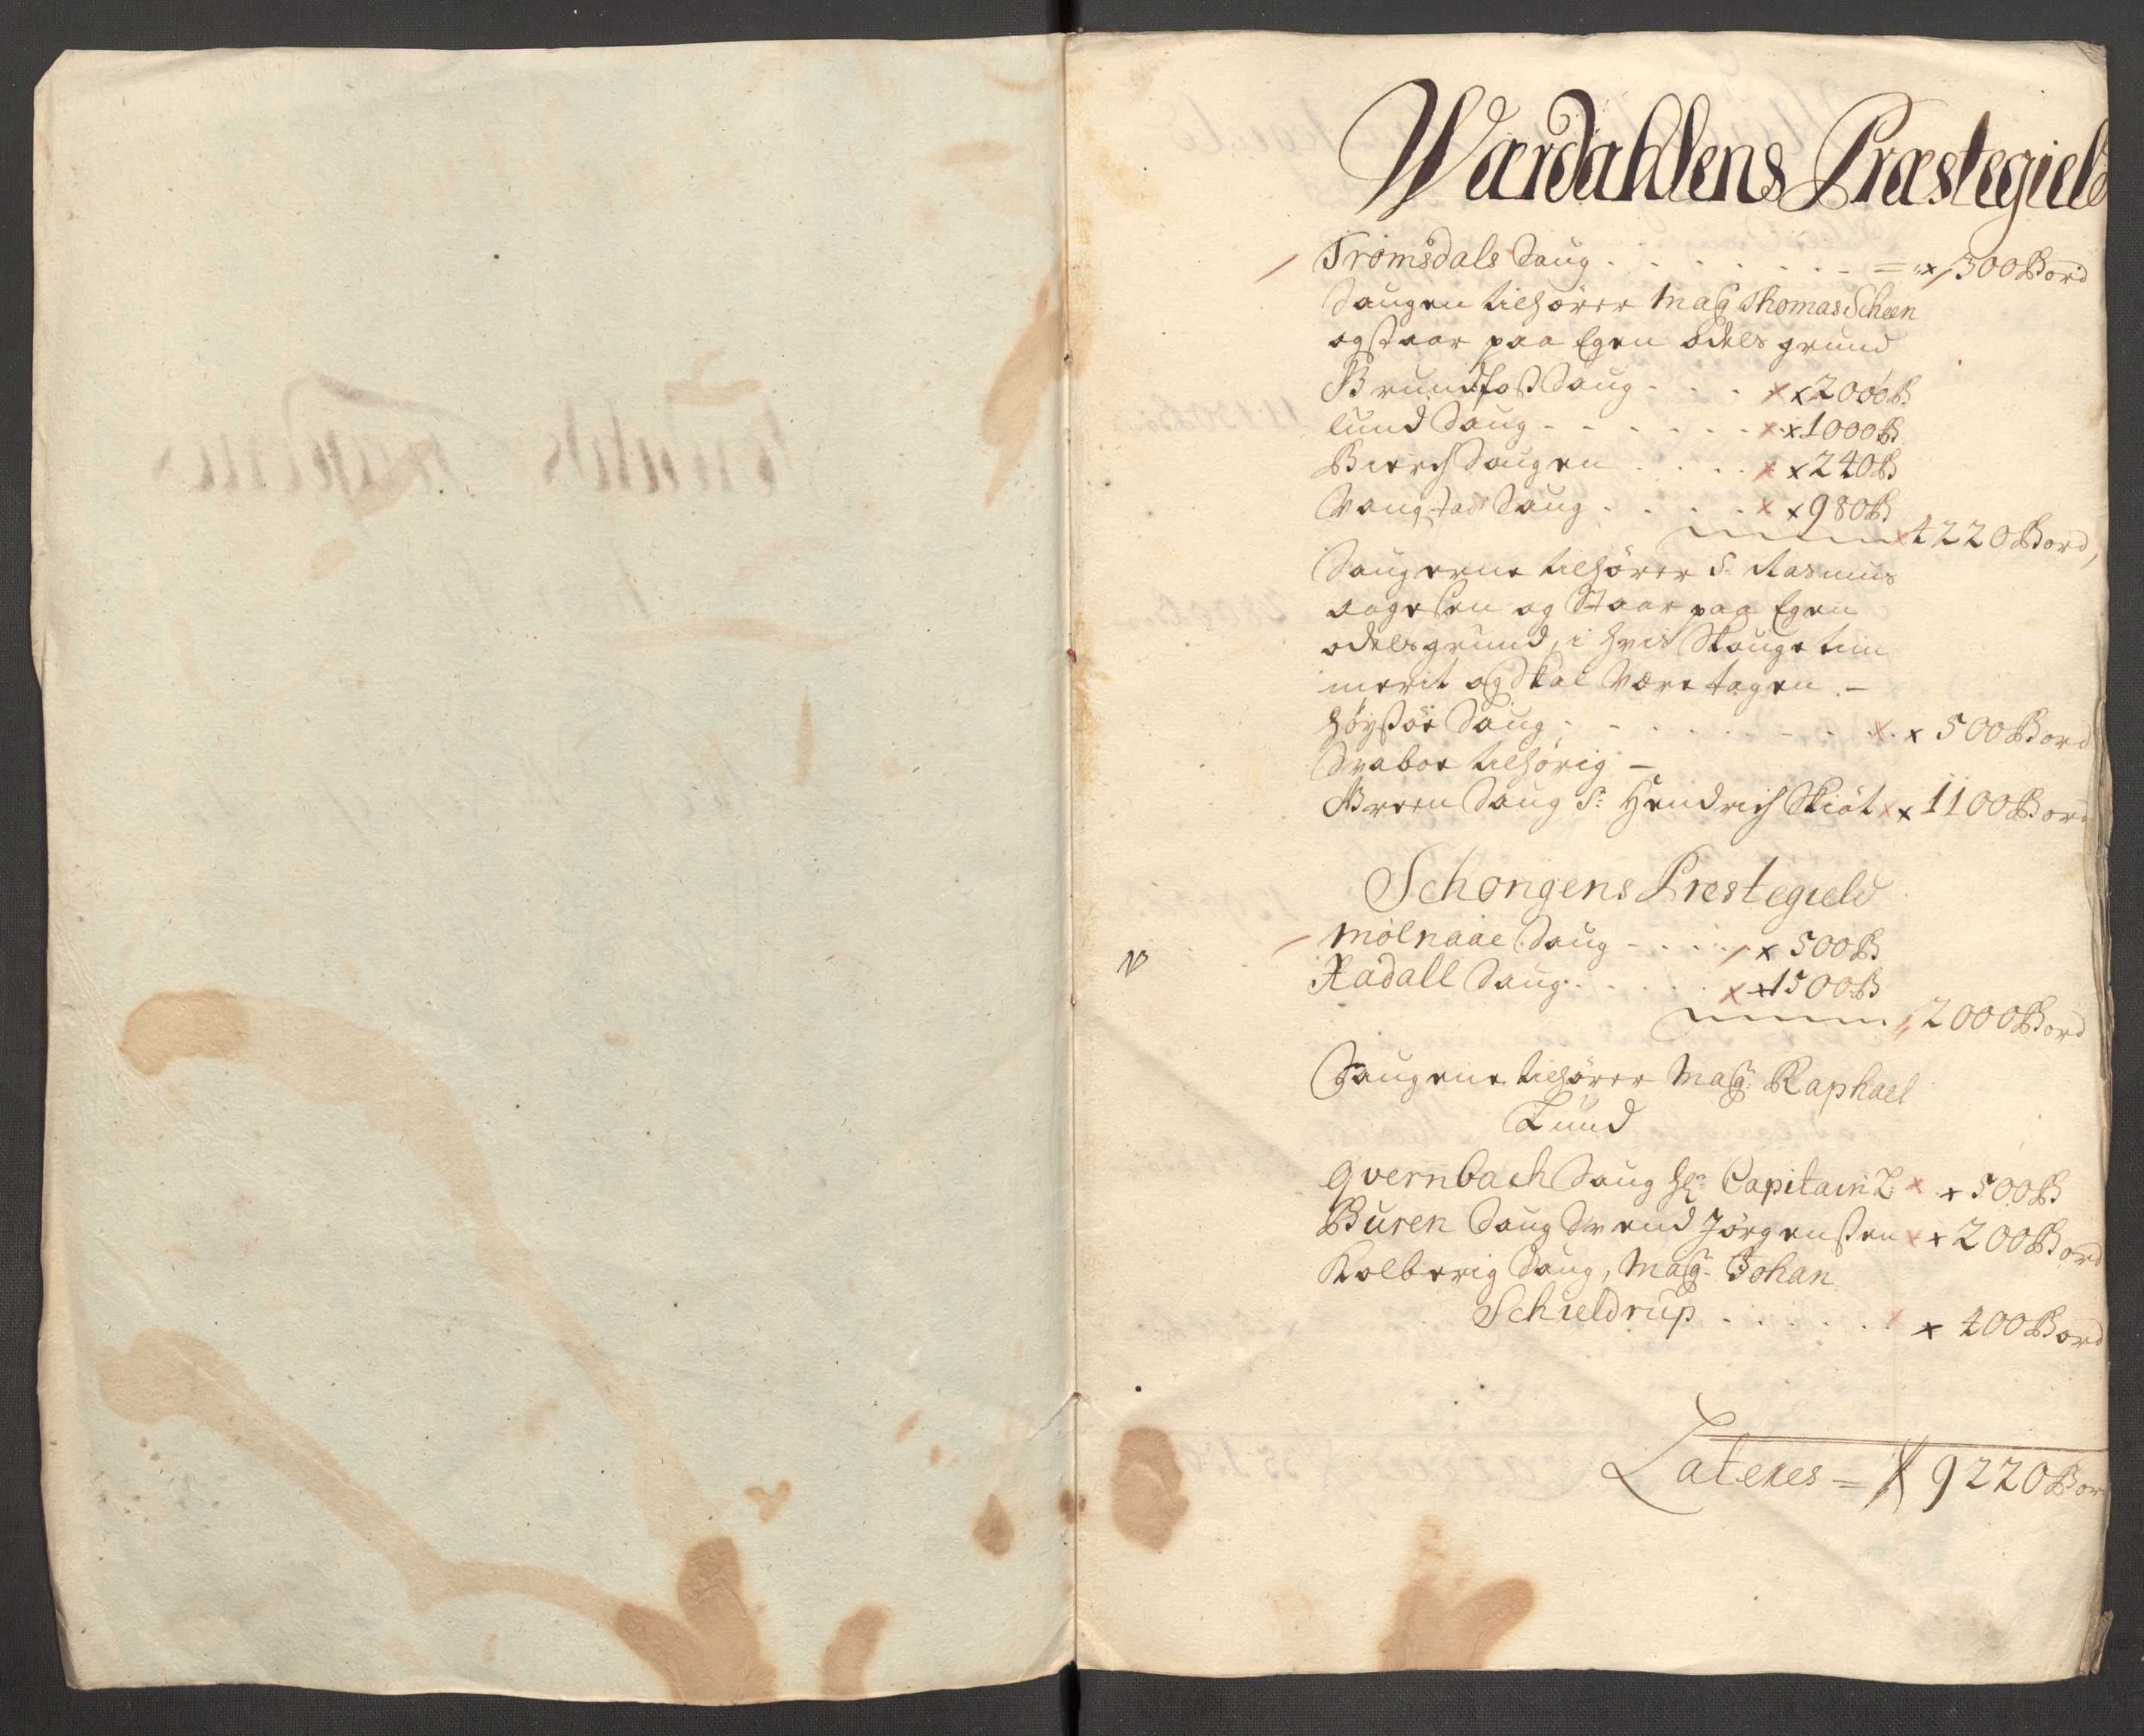 Wardahlens Præstegield
Tromsdals Saug . . . . . . = x 300 Bord
Saugen tilhører Mag Thomas Scheen
og staar paa Egen odels grund
Brundfoss Saug - - - x x 2000 B
lund Saug - - - - - - x x 1000 B
Bierch Saugen . . . . x x 240 B
Vangstad Saug . . . . x x 980 B
x 4220 Bord,
Saugerne tilhører Sr. Rasmus
aagesen og Staar paa Egen
odelsgrund, i hvis Skouge tim
merit og Skal Være tagen. -
Saug . . . . . . x x 500 Bord
tilhørig -
Saug Sr: Hendrich Skiøt x x 1100 Bord
Schongens Prestegield
Molnaae Saug - - - - x 500 B
Radall Saug . . . . x x 1500 B
2000 Bord
Saugene tilhører Mag: Raphael
Lund
Qvernbach Saug Hr: Capitain L: x x 500 B
Buren Saug Svend Jørgensen x x 200 Bord
Kolberig Saug, Mag: Johan
Schieldrup . . . . . . x 400 Bord
Lateres = 9220 Bord